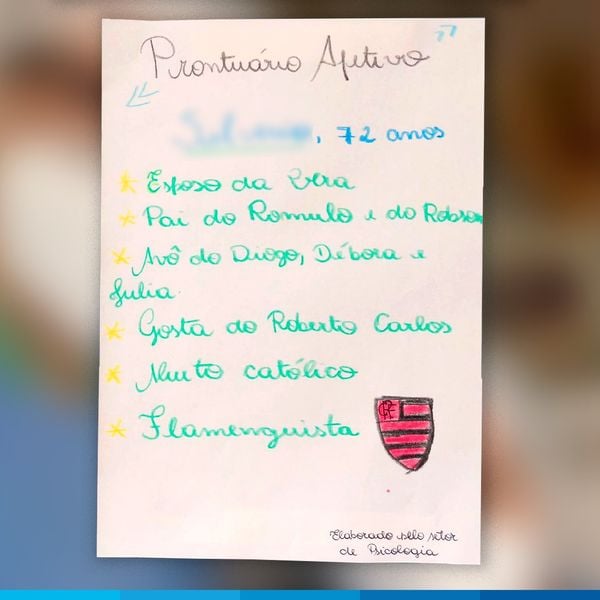 Prontuário Afetivo
, 72 anos
Esposo da Vera
Pai do Romulo e do Robson
Avô do Diogo, Débora e
Julia.
Gosta do Roberto Carlos
Muito católico
Flamenguista
CRF
Elaborado pelo setor
de Psicologia